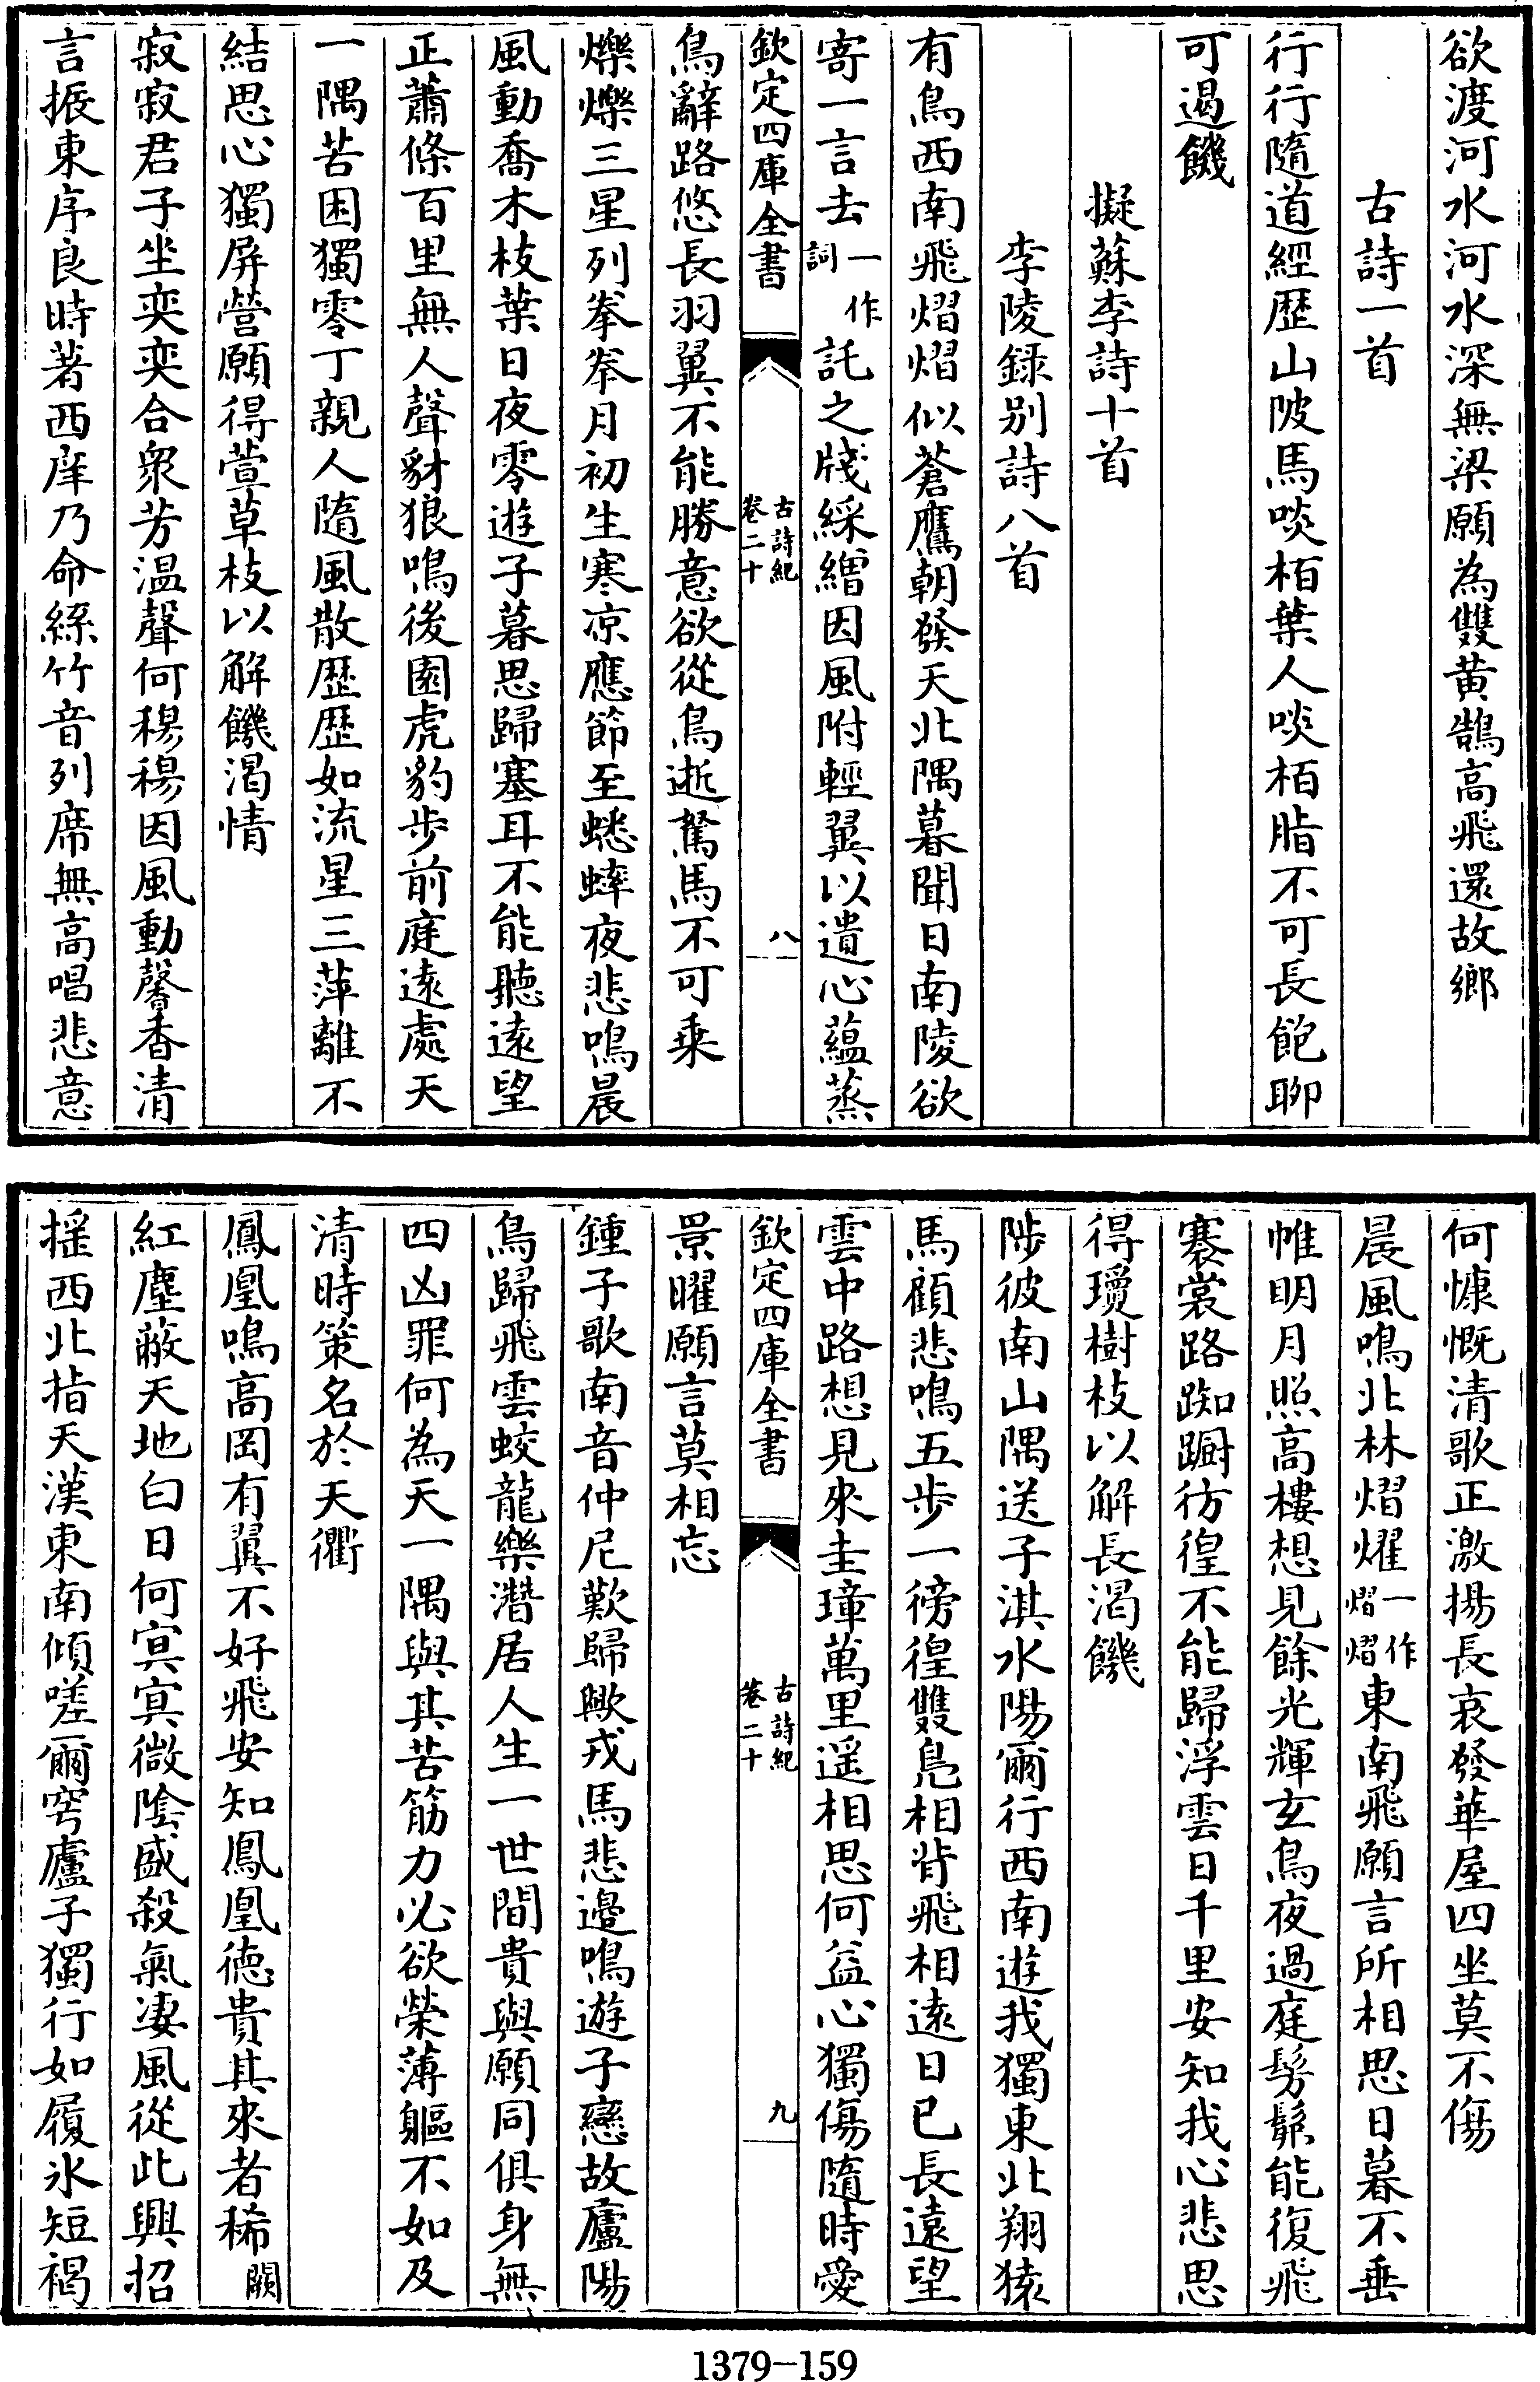 欲渡河水河水深無梁願為雙黄鵠高飛還故鄉
古詩一首
行行隨道經歴山陂馬啖栢葉人啖栢脂不可長飽聊
可遏饑
擬蘇李詩十首
李陵録别詩八首
有鳥西南飛熠熠似蒼鷹朝發天北隅暮聞日南陵欲
寄一言去一作詞託之牋綵繒因風附輕翼以遺心藴蒸
欽定四庫全書
古詩紀
卷二十
八
鳥辭路悠長羽翼不能勝意欲從鳥逝駑馬不可乗
爍爍三星列拳拳月初生寒凉應節至蟋蟀夜悲鳴晨
風動喬木枝葉日夜零遊子暮思歸塞耳不能聽逺望
正蕭條百里無人聲豺狼鳴後園虎豹步前庭逺處天
一隅苦困獨零丁親人隨風散歴歴如流星三萍離不
結思心獨屏營願得萱草枝以解饑渴情
寂寂君子坐奕奕合衆芳温聲何穆穆因風動馨香清
言振東序良時著西庠乃命絲竹音列席無高唱悲意
何慷慨清歌正激揚長哀發華屋四坐莫不傷
晨風鳴北林熠燿一作熠熠東南飛願言所相思日暮不垂
帷明月照高樓想見餘光輝玄鳥夜過庭髣髴能復飛
褰裳路踟蹰彷徨不能歸浮雲日千里安知我心悲思
得瓊樹枝以解長渴饑
陟彼南山隅送子淇水陽爾行西南遊我獨東北翔猿
馬顧悲鳴五步一徬徨雙鳬相背飛相逺日已長遠望
雲中路想見來圭璋萬里遥相思何益心獨傷隨時愛
欽定四庫全書
古詩紀
卷二十
九
景曜願言莫相忘
鍾子歌南音仲尼歎歸歟戎馬悲邉鳴遊子戀故廬陽
鳥歸飛雲蛟龍樂潛居人生一世間貴與願同俱身無
四凶罪何為天一隅與其苦筋力必欲榮薄軀不如及
清時策名於天衢
鳳凰鳴高岡有翼不好飛安知鳳凰徳貴其來者稀闕
紅塵蔽天地白日何㝠㝠微陰盛殺氣凄風從此興招
揺西北指天漢東南傾嗟爾穹廬子獨行如履氷短褐
1379-159